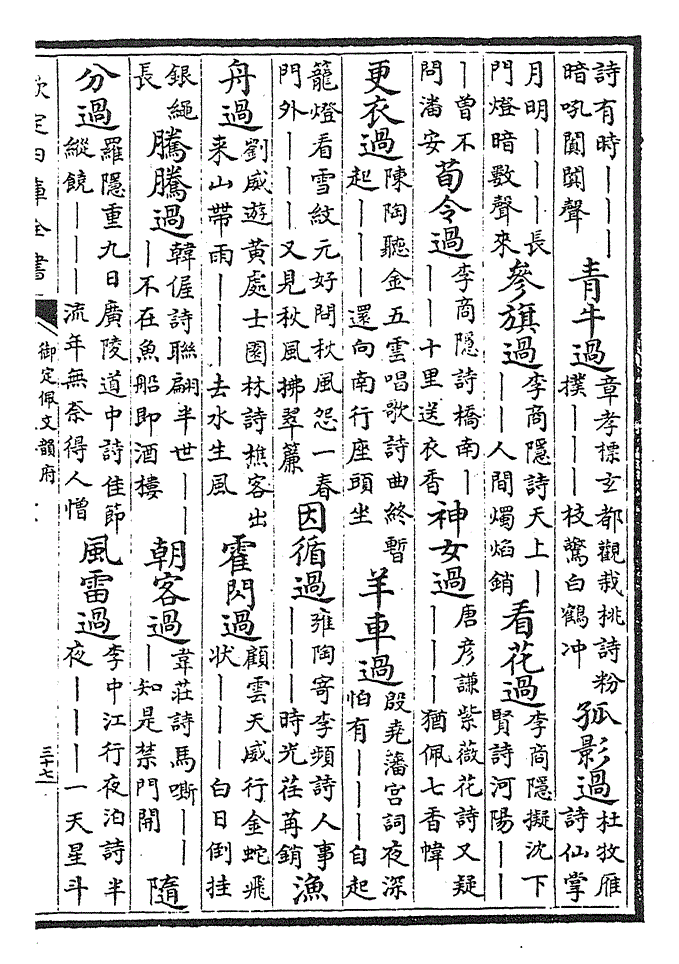 詩有時｜｜｜暗吼闐闐聲 青牛過 章孝標玄都觀栽桃詩粉撲｜｜｜枝驚白鶴冲 孤影過 杜牧雁詩仙掌
月明｜｜｜長門燈暗數聲來 參旗過 李商隱詩天上｜｜｜人間燭焰銷 看花過 李商隱擬沈下賢詩河陽｜｜
｜曾不問潘安 荀令過 李商隱詩橋南｜｜｜十里送衣香 神女過 唐彦謙紫薇花詩又疑｜｜｜猶佩七香幃
更衣過 陳陶聽金五雲唱歌詩曲終暫起｜｜｜還向南行座頭坐 羊車過 殷堯藩宮詞夜深怕有｜｜｜自起
籠燈看雪紋元好問秋風怨一春門外｜｜｜又見秋風拂翠簾 因循過 雍陶寄李頻詩人事｜｜｜時光荏苒銷 漁
舟過 劉威遊黃處士園林詩樵客出来山帶雨｜｜｜去水生風 霍閃過 顧雲天威行金蛇飛狀｜｜｜白日倒挂
銀繩長 騰騰過 韓偓詩聯翩半世｜｜｜不在魚船即酒樓 朝客過 韋莊詩馬嘶｜｜｜知是禁門開 隨
分過 羅隱重九日廣陵道中詩佳節縱饒｜｜｜流年無柰得人憎 風雷過 李中江行夜泊詩半夜｜｜｜一天星斗
欽定四庫全書 御定佩文韻府 三十七